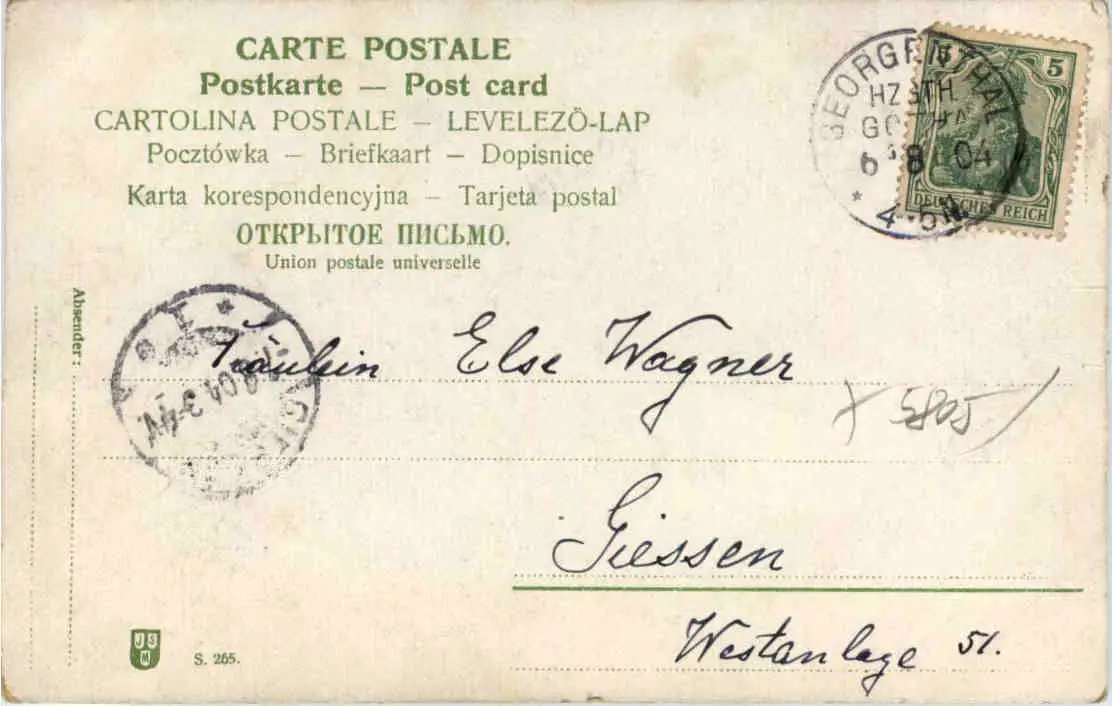 CARTE POSTALE
Postkarte — Post card
CARTOLINA POSTALE — LEVELEZÖ-LAP
Pocztówka — Briefkaart — Dopisnice
Karta korespondencyjna — Tarjeta postal
ОТКРЫТОЕ ПИСЬМО.
Union postale universelle
GEORGENTHAL
HZGTH.
GOTHA
6 8 04
* 4-5N. *
5
DEUTSCHES REICH
Absender:
04 3-4N.
Fräulein Else Wagner
5805
Giessen
Westanlage 51.
JSM
S. 265.